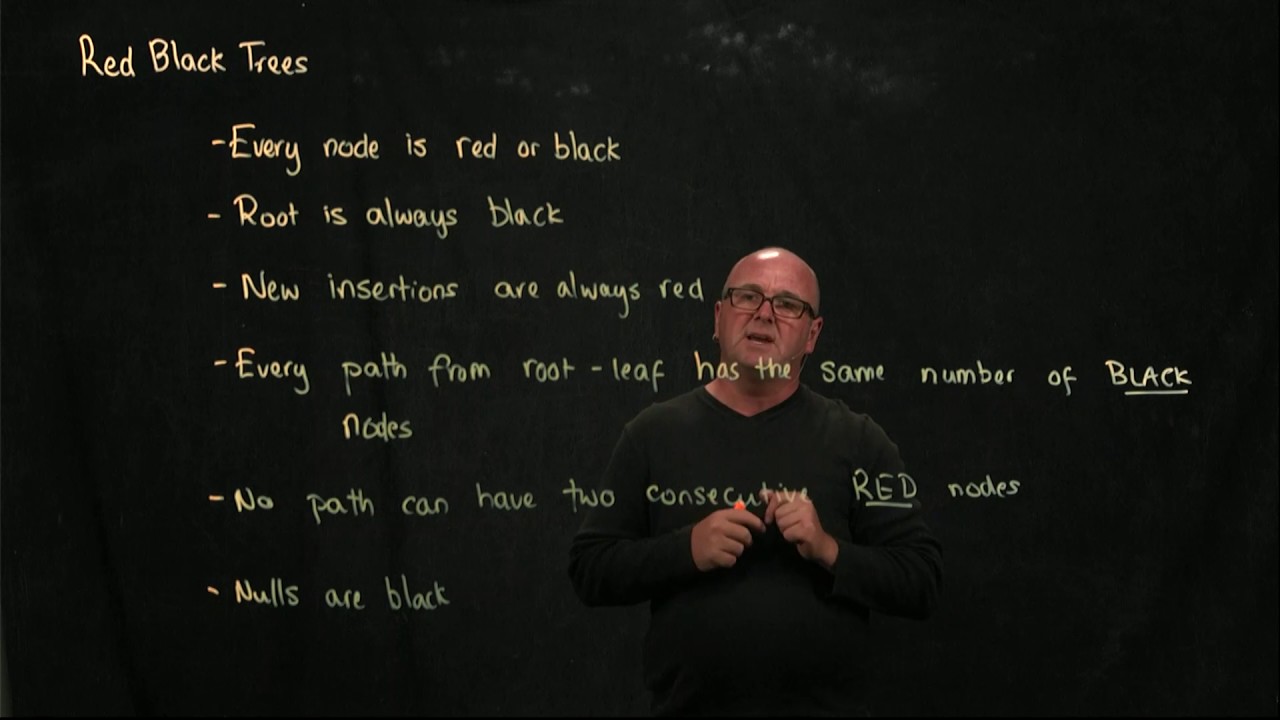 Red Black Trees
- Every node is red or black
- Root is always black
- New insertions are always red
- Every path from root - leaf has the same number of BLACK
nodes
- No path can have two consecutive RED nodes
- Nulls are black